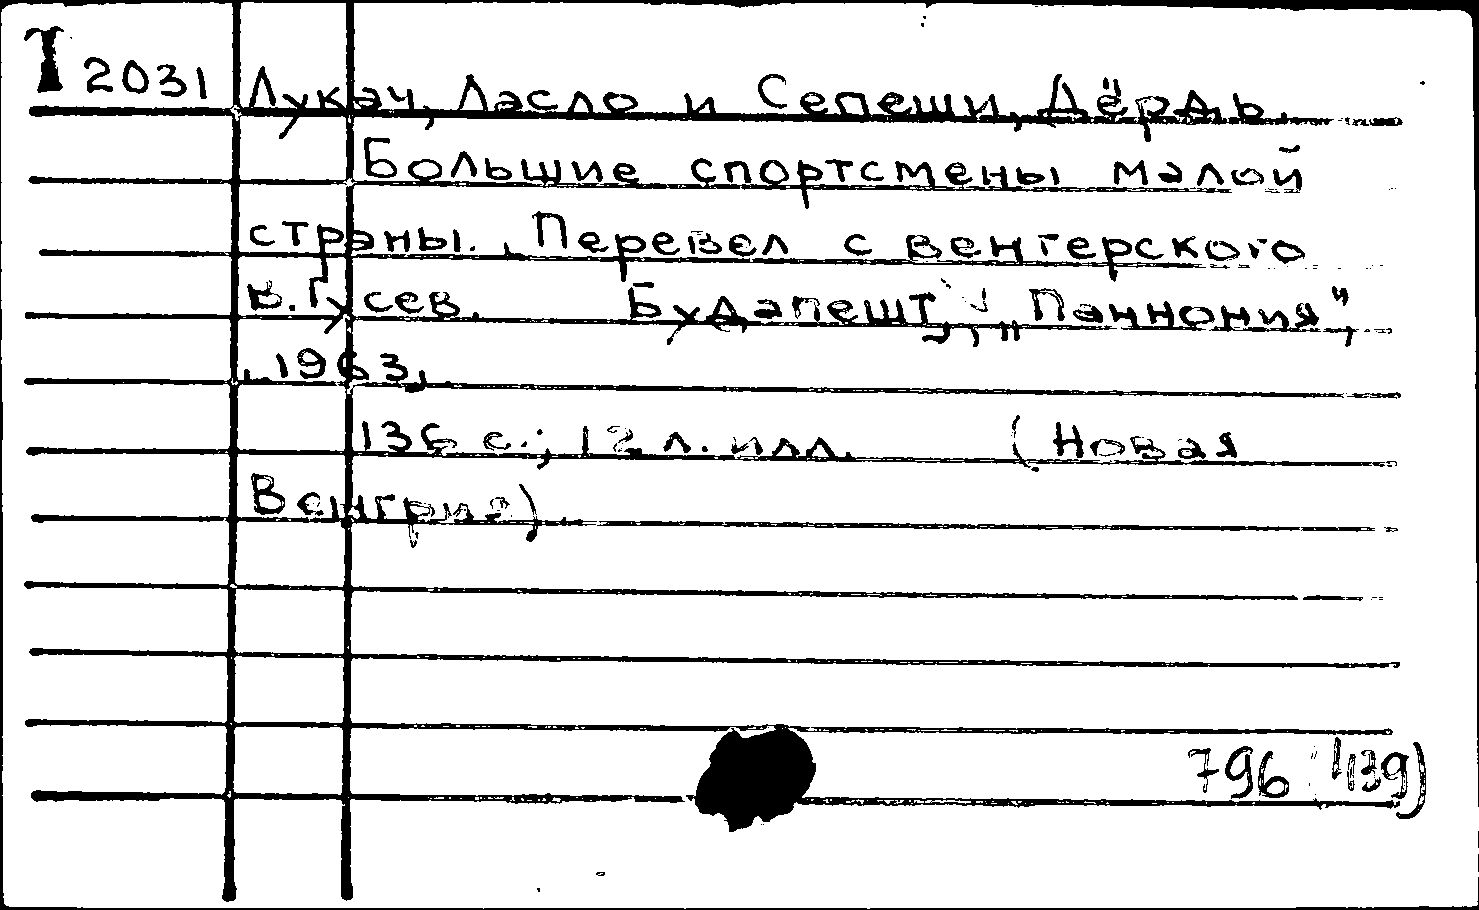 I 2031 Лукач, Ласло и Сепеши, Дёрдь.
Большие спортсмены малой
страны. Перевел с венгерского
В. Гусев. Будапешт, „Паннония",
1963.
136 с.; 12 л. илл. (Новая
Венгрия).
796 (439)